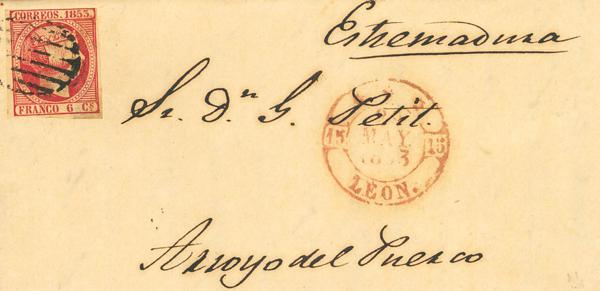 CORREOS. 1853.
FRANCO 6 CS
Estremadura
Sr. Dn G. Petit.
15 MAY 15
1853
LEON.
Arroyo del Puerco